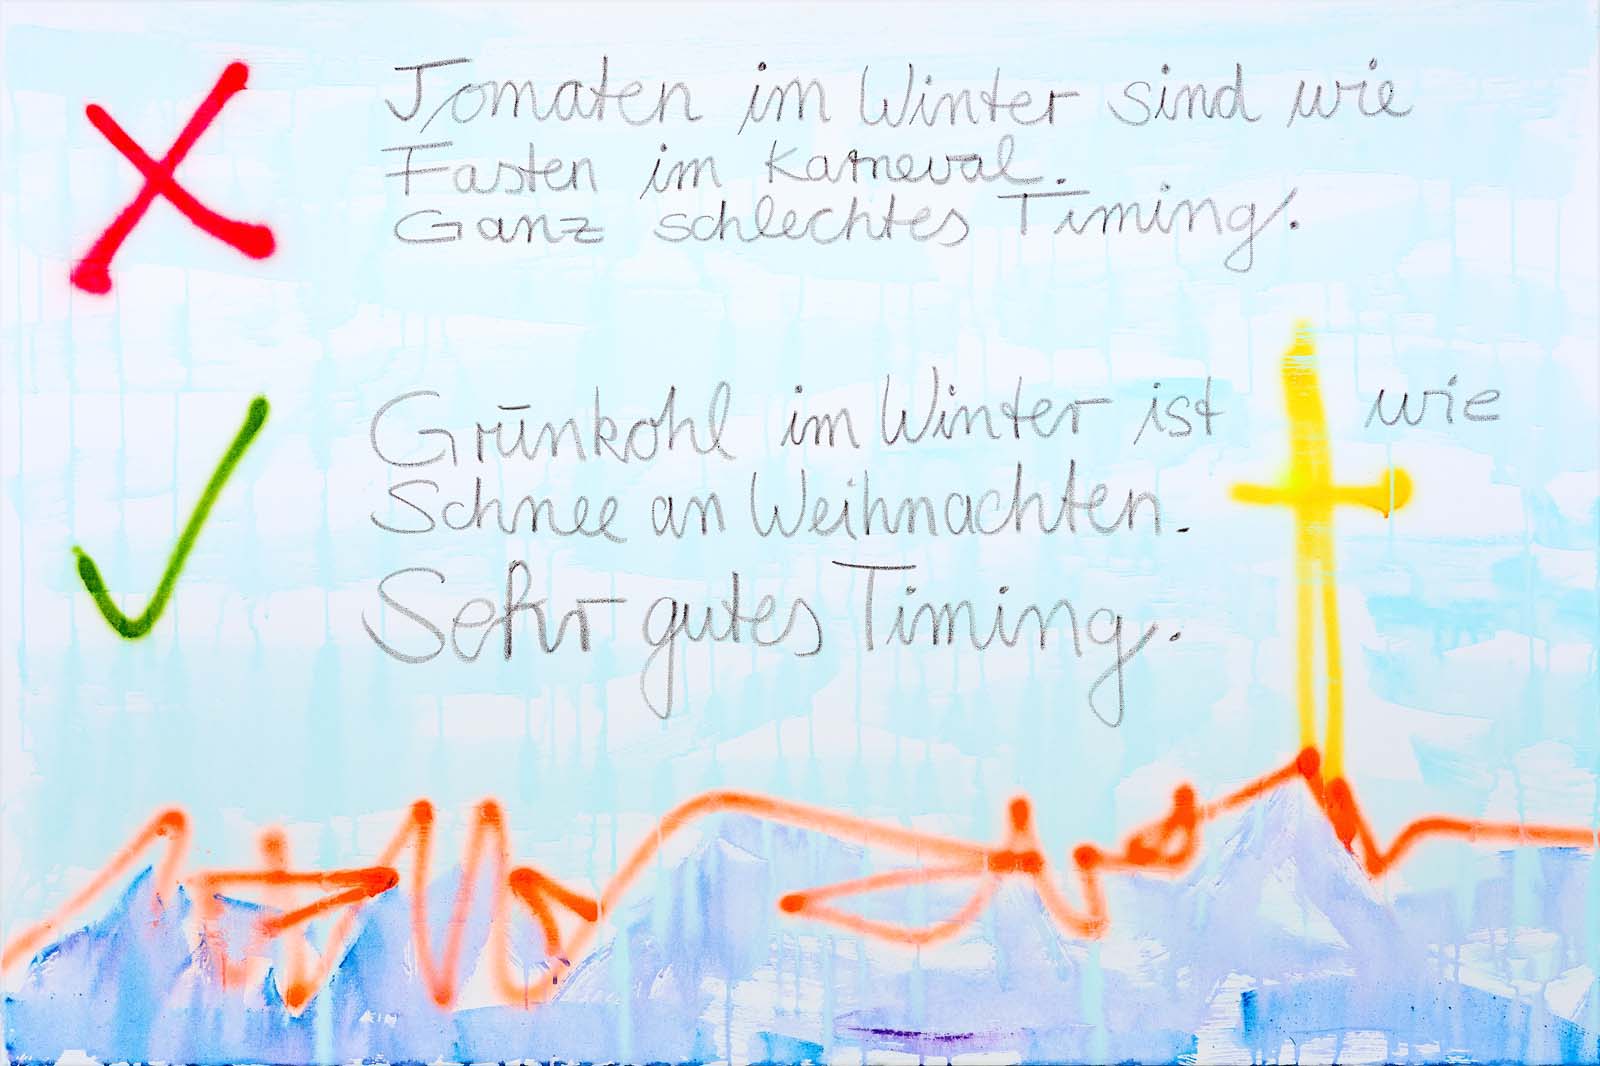 Tomaten im Winter sind wie
Fasten im Karneval.
Ganz schlechtes Timing.
Grünkohl im Winter ist wie
Schnee an Weihnachten.
Sehr gutes Timing.